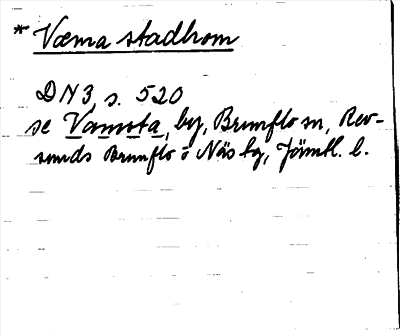 * Væma stadhom
DN 3, s. 520
se Vamsta, by, Brunflo sn, Rev-
sunds Brunflo o Näs tg, Jämtl. l.